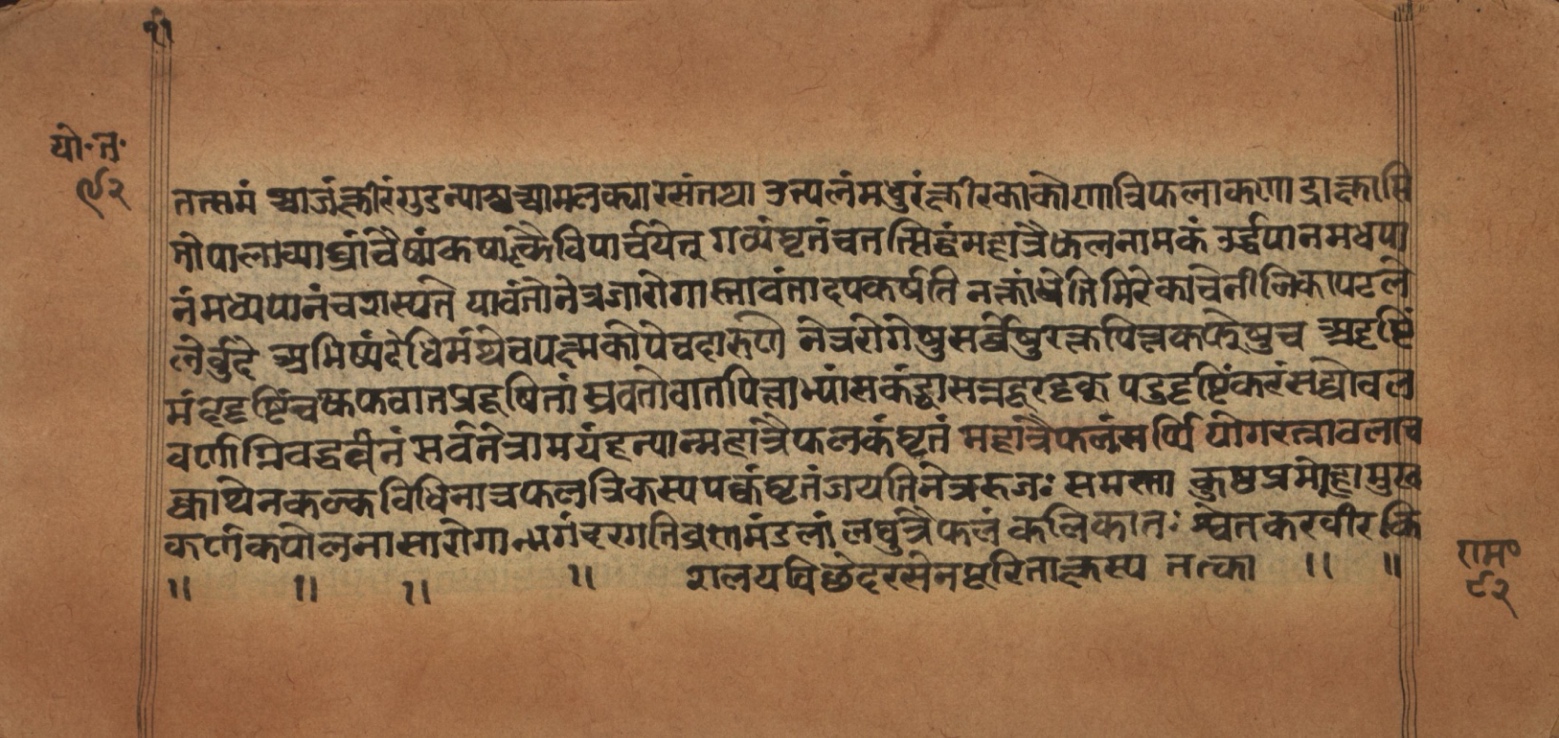 यो॰त॰
९२
तत्समं आजंक्षीरंगुडूच्याश्चआमलक्यारसंतथा उत्पलंमधुरंक्षीरकाकोणात्रिफलाकणा द्राक्षासि
गव्यंघृतंचतत्सिद्धंमहात्रैफलनामकं उर्द्धपानमधपा
नंमध्यपानंचशस्पते यावंतोनेत्रजारोगास्तावंतादपकर्षति नक्तांधेतिमिरेकाचेनीलिकापटले
र्वुदे अभिष्यंदेधिमंथेचपक्ष्मकोपेचदारुणे नेत्ररोगेषुसर्वेषुरक्तपित्तकफेषुच अदृष्टिं
मंददृष्टिंचकफवातप्रदूषितां स्रवतोवातपित्ताभ्यांसकंड्वासन्नदूरदृक् पटुदृष्टिकरंसद्योवल
वर्णाग्निवर्द्धनं सर्वनेत्रामयंहन्यान्महात्रैफलकंघृतं महात्रैफलंसर्पि योगरत्नावलाव
क्वाथेनकल्कविधिनात्रफलत्रिकस्पपक्वंघृतंजयतिनेत्ररुजः समस्ता कुष्ठप्रमेहामुख
कर्णकपोलनासारोगान् लघुत्रैफलं कलिकातः श्वेतकरवीरकि
शलयविछेदरसेनपूरिताक्षस्प तत्का ॥ ॥
राम॰
९२